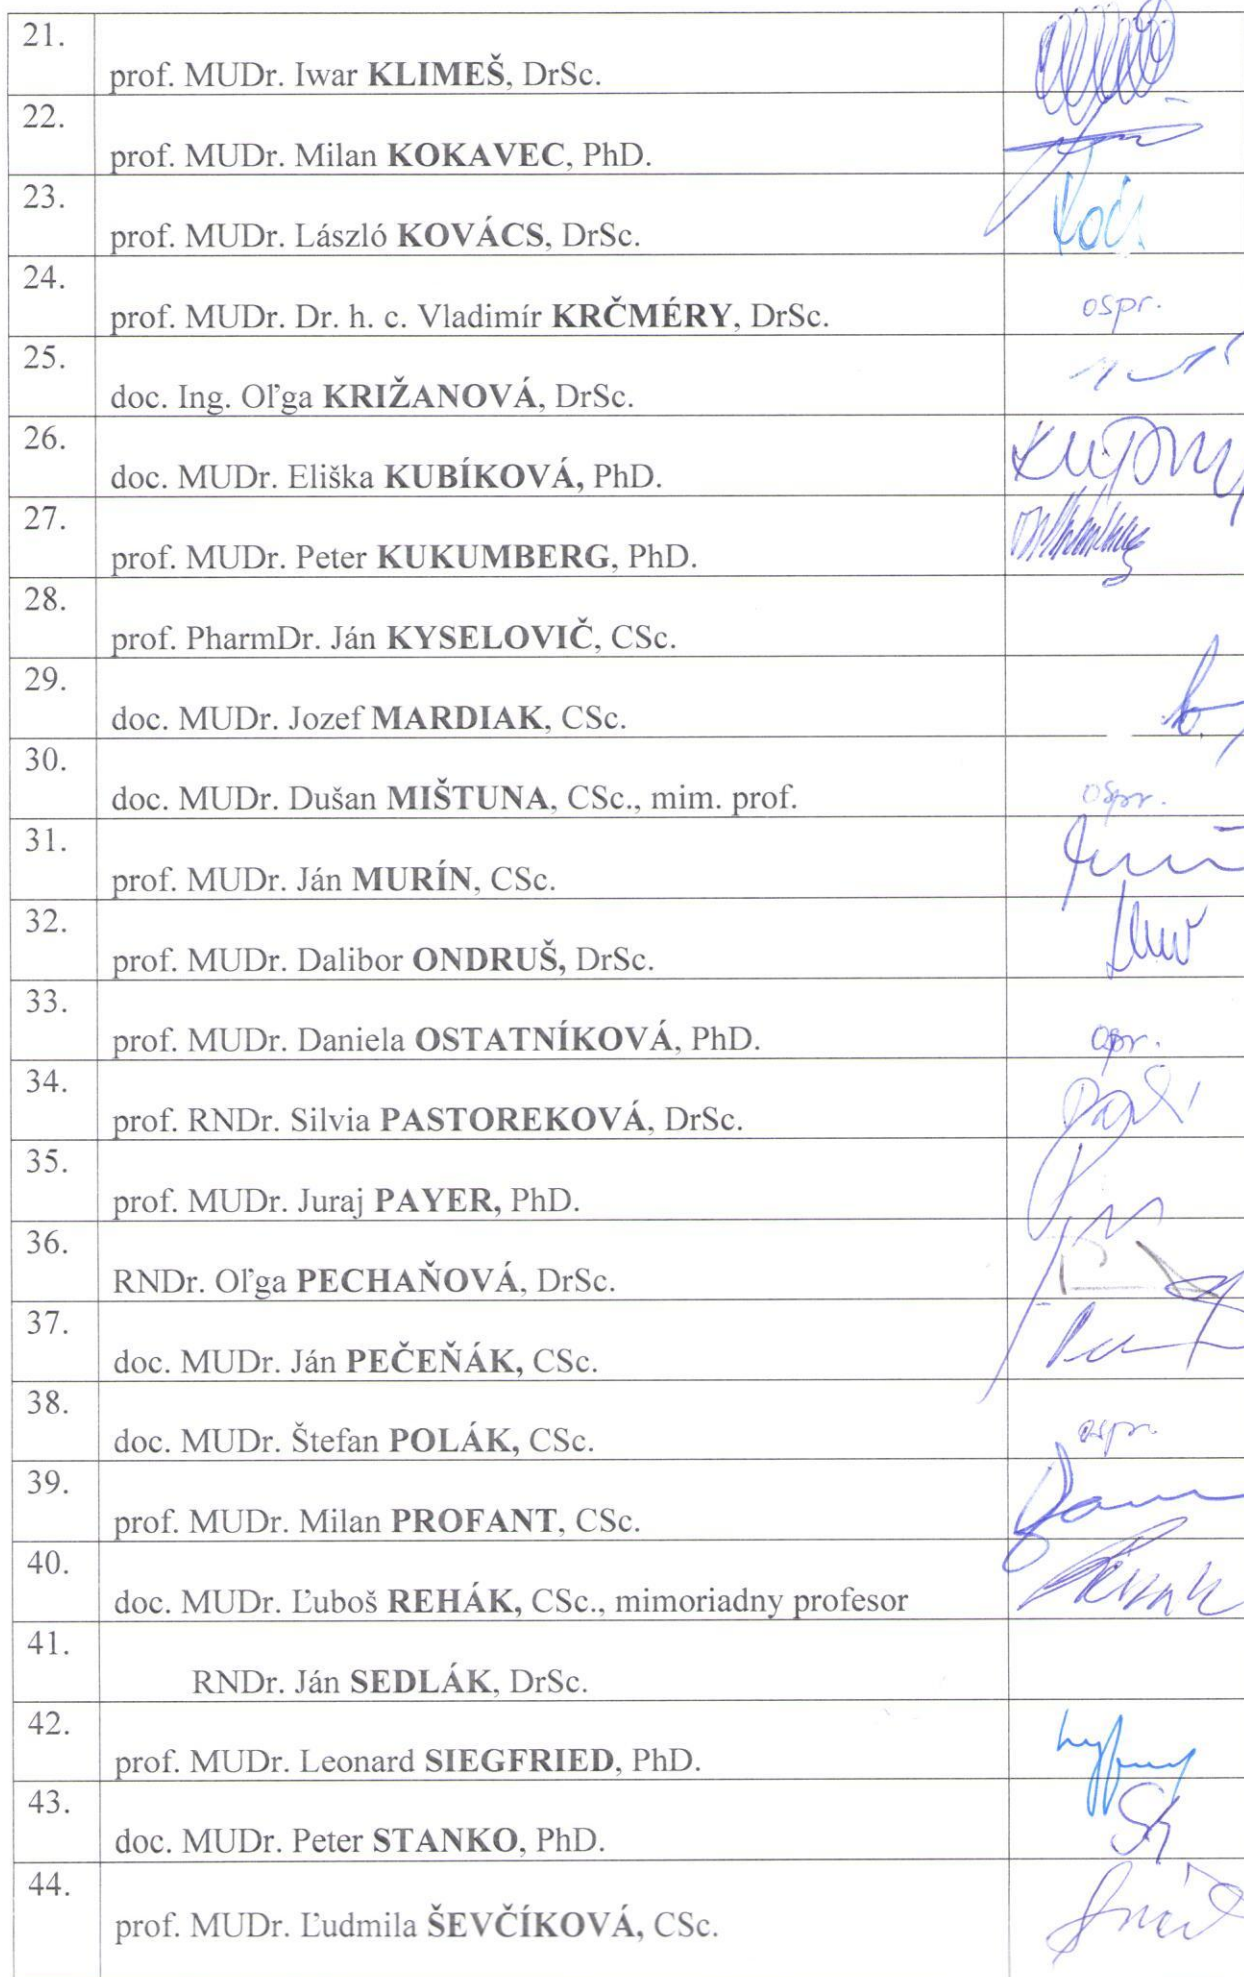 21.
prof. MUDr. Iwar KLIMEŠ, DrSc.
22.
prof. MUDr. Milan KOKAVEC, PhD.
23.
prof. MUDr. László KOVÁCS, DrSc.
24.
prof. MUDr. Dr. h. c. Vladimír KRČMÉRY, DrSc. ospr.
25.
doc. Ing. Oľga KRIŽANOVÁ, DrSc.
26.
doc. MUDr. Eliška KUBÍKOVÁ, PhD.
27.
prof. MUDr. Peter KUKUMBERG, PhD.
28.
prof. PharmDr. Ján KYSELOVIČ, CSc.
29.
doc. MUDr. Jozef MARDIAK, CSc.
30.
doc. MUDr. Dušan MIŠTUNA, CSc., mim. prof. ospr.
31.
prof. MUDr. Ján MURÍN, CSc.
32.
prof. MUDr. Dalibor ONDRUŠ, DrSc.
33.
prof. MUDr. Daniela OSTATNÍKOVÁ, PhD.
34.
prof. RNDr. Silvia PASTOREKOVÁ, DrSc.
35.
prof. MUDr. Juraj PAYER, PhD.
36.
RNDr. Oľga PECHAŇOVÁ, DrSc.
37.
doc. MUDr. Ján PEČEŇÁK, CSc.
38.
doc. MUDr. Štefan POLÁK, CSc. ospr.
39.
prof. MUDr. Milan PROFANT, CSc.
40.
doc. MUDr. Ľuboš REHÁK, CSc., mimoriadny profesor
41.
RNDr. Ján SEDLÁK, DrSc.
42.
prof. MUDr. Leonard SIEGFRIED, PhD.
43.
doc. MUDr. Peter STANKO, PhD.
44.
prof. MUDr. Ľudmila ŠEVČÍKOVÁ, CSc.